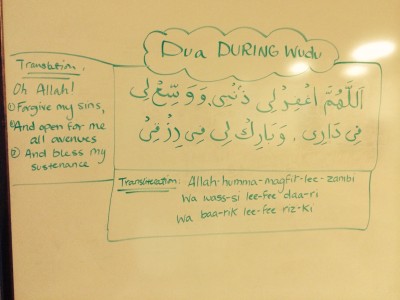 Dua DURING Wudu
Translation.
Oh Allah!
① Forgive my sins,
② And open for me
all avenues
③ And bless my
sustenance
اَللّٰهُمَّ اغْفِرْ لِي ذَنْبِي، وَوَسِّعْ لِي
فِي دَارِي، وَبَارِكْ لِي فِي رِزْقِي
Transliteration: Allah-humma-magfir-lee-zambi
Wa wass-si lee-fee daa-ri
Wa baa-rik lee-fee riz-ki